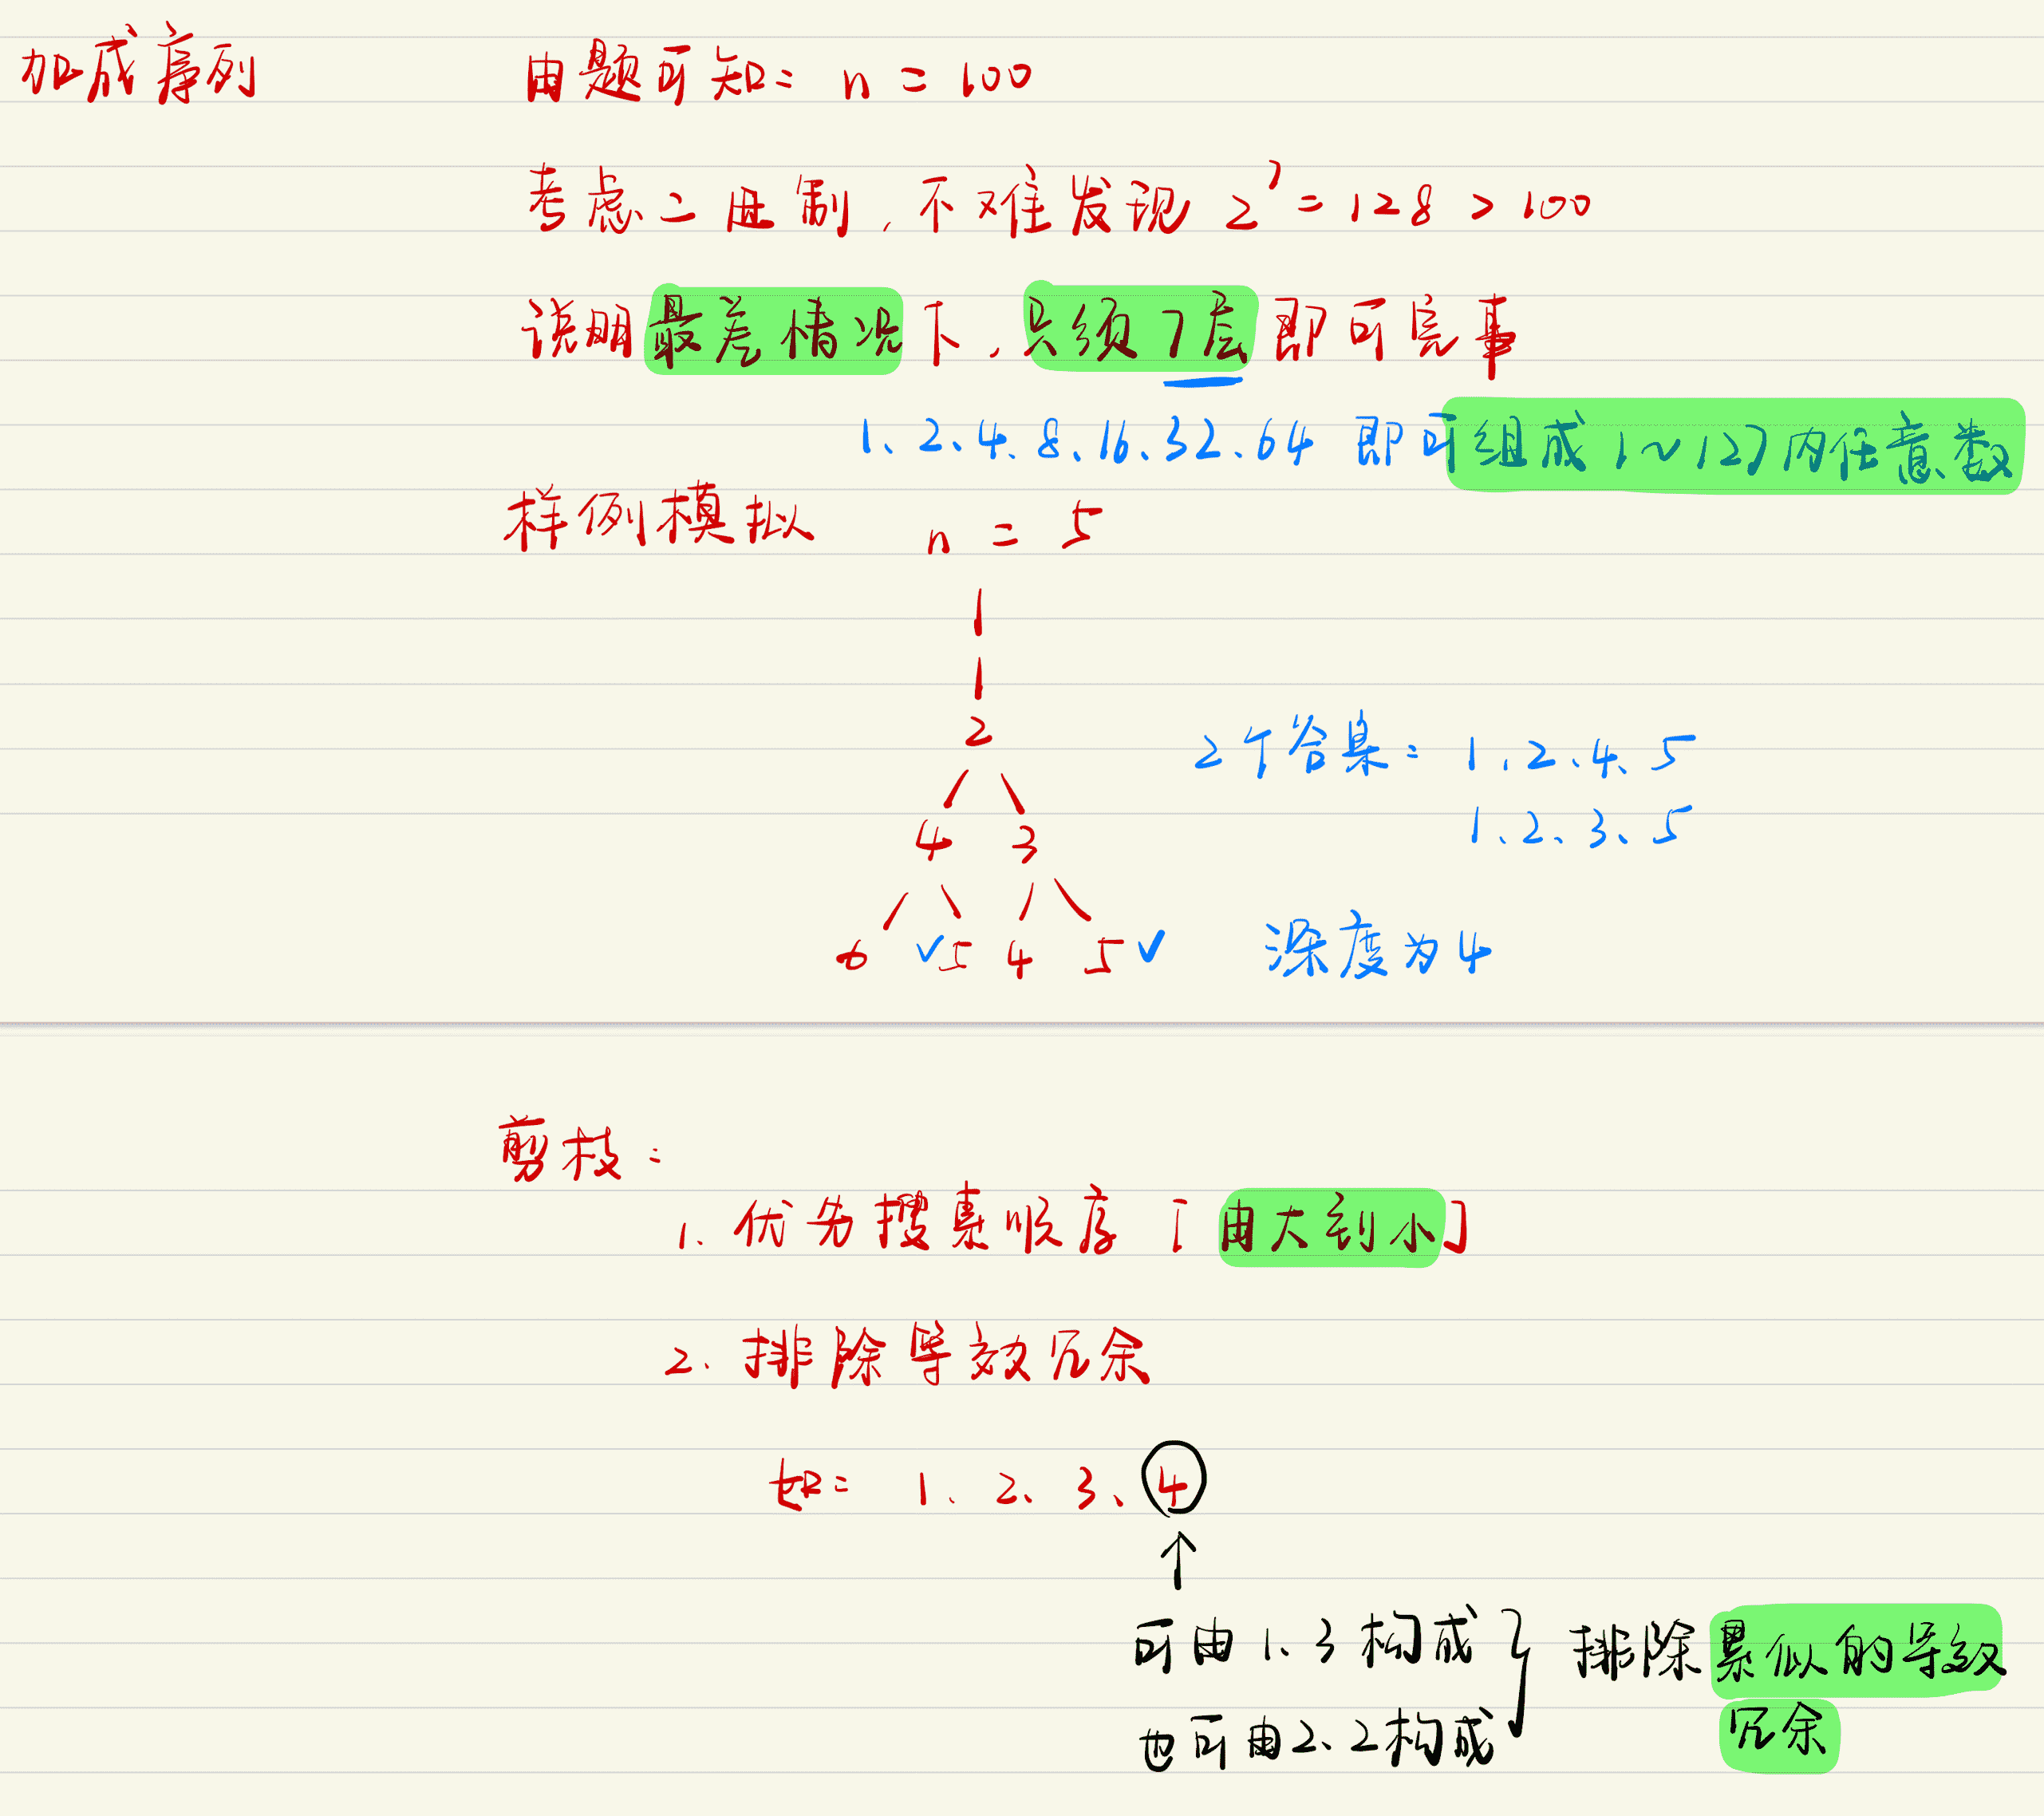 加成序列
由题可知: n = 100
考虑二进制, 不难发现 2^7 = 128 > 100
说明最差情况下, 只须7层即可完事
1、2、4、8、16、32、64 即可组成1~127内任意数
样例模拟 n = 5
1
1
2
4 3
6 ✓5 4 5✓
2个答案: 1、2、4、5
1、2、3、5
深度为4
剪枝:
1. 优先搜索顺序「由大到小」
2. 排除等效冗余
如: 1、2、3、4
↑
可由1、3构成
也可由2、2构成
排除类似的等效
冗余